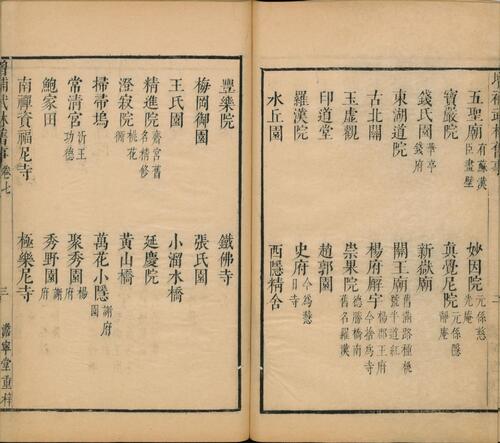 五聖廟 有蘇漢臣畫壁 妙因院 元係慈光庵
寶嚴院 真覺尼院 元係隱靜庵
錢氏園 華亭錢府 新嶽廟
東湖道院 關王廟 舊滿路種桃號半道紅
古北關 楊府廨宇 楊郡王府今捨爲寺
玉虛觀 崇果院 德勝橋南舊名羅漢
印道堂 趙郭園
羅漢院 史府 今爲慧日寺
水丘園 西隱精舍
豐樂院 鐵佛寺
梅岡御園 張氏園
王氏園 小溜水橋
精進院 齋宮舊名精修 延慶院
澄寂院 桃花衕 黃山橋
掃帚塢 萬花小隱 謝府園
常清宮 沂王功德 聚秀園 楊府
鮑家田 秀野園 謝府
南禪資福尼寺 極樂尼寺
增補武林舊事 卷七 三 澹寧堂重梓